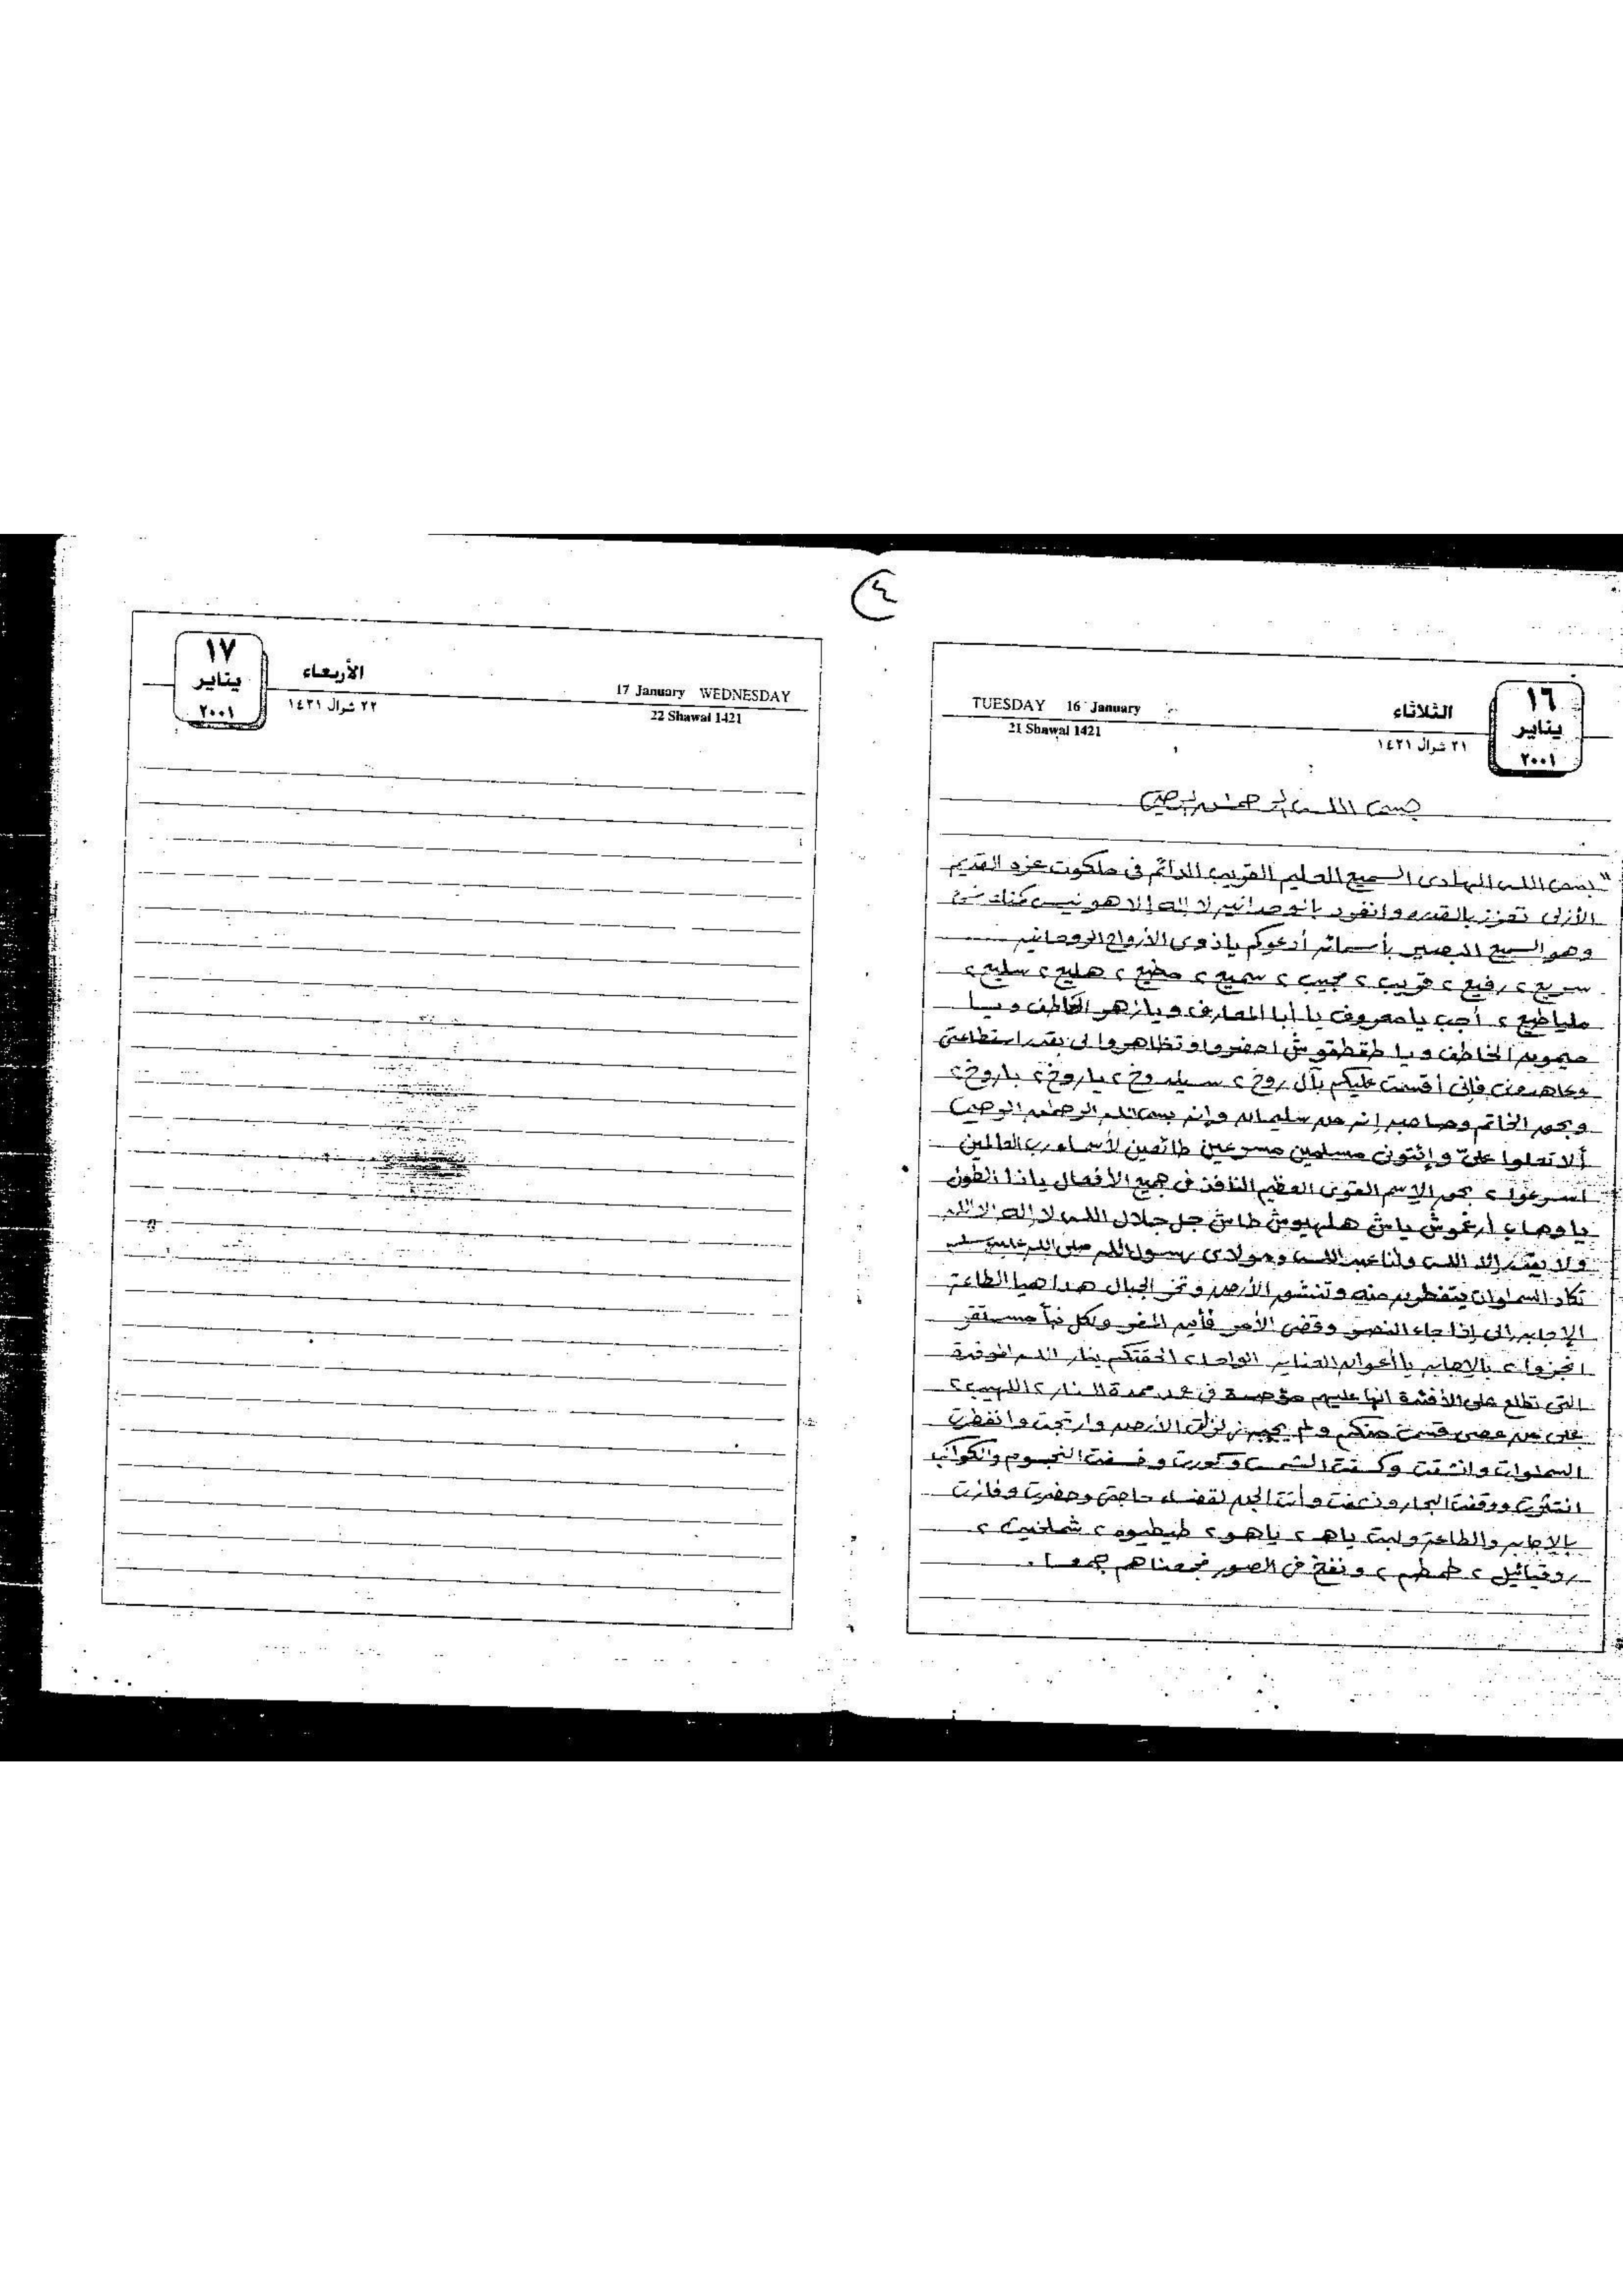 ٤
١٦
يناير
٢٠٠١
الثلاثاء
٢١ شوال ١٤٢١
TUESDAY 16 January
21 Shawal 1421
بسم الله الرحمن الرحيم
"بسم الله الهادى السميع العليم القريب الدائم فى ملكوت عزه القديم
الأزلى تعزز بالقدره وانفرد بالوحدانيه لا إله إلا هو ليس كمثله شئ
وهو السميع البصير بأسمائه أدعوكم ياذوى الأرواح الروحانيه
سريع ٢ رفيع ٢ قريب ٢ مجيب ٢ سميع ٢ مطيع ٢ هليع ٢ سليع ٢
ملياطيع ٢ أجب يا معروف يا أبا المعارف ويا زهر الخاطف ويا
ميمون الخاطف ويا طقطقوش احضروا وتظاهروا لى بقدر استطاعتى
فإنى أقسمت عليكم بآل روخ ٢ روخ ٢ ياروخ ٢ باروخ ٢
وبحق الخاتم وصاحبه إنه من سليمان وإنه بسم الله الرحمن الرحيم
ألا تعلوا علىّ وإئتونى مسلمين مسرعين طائعين لأسماء رب العالمين
اسرعوا ٢ بحق الإسم القوى العظيم النافذ فى جميع الأفعال ياذا الطول
ياوهاب أرغموش ياش هلهيوش طاش جل جلال الله لا إله الا الله
ولا إلا الله وأنا عبد الله ومولاى رسول الله صلى الله عليه وسلم
تكاد السماوات يتفطرن منه وتنشق الأرض وتخر الجبال هدا هيا الطاعه
الإجابه إلى إذا جاء النصر وقضى الأمر فأين المفر ولكل نبأ مستقر
انجزوا ٢ بالإجابه يا أعوان ٢ الحقتكم بنار الله الموقدة
التى تطلع على الأفئدة انها عليهم مؤصدة فى عمد ممددة النار ٢ اللهيب ٢
على من عصى منكم ولم يجب زلزلت الأرض وارتجت وانفطرت
السماوات وانشقت وكسفت الشمس وكورت وخسفت النجوم والكواكب
انتثرت ووقفت البحار وأتت الجن لقضاء حاجتى وحضرت وفازت
بالإجابه والطاعه ولبت ياه ٢ ياهو ٢ طيطيوه ٢ ٢
روقيائيل ٢ طمطم ٢ ونفخ فى الصور فجمعناهم جمعا .
١٧
يناير
٢٠٠١
الأربعاء
٢٢ شوال ١٤٢١
17 January WEDNESDAY
22 Shawal 1421